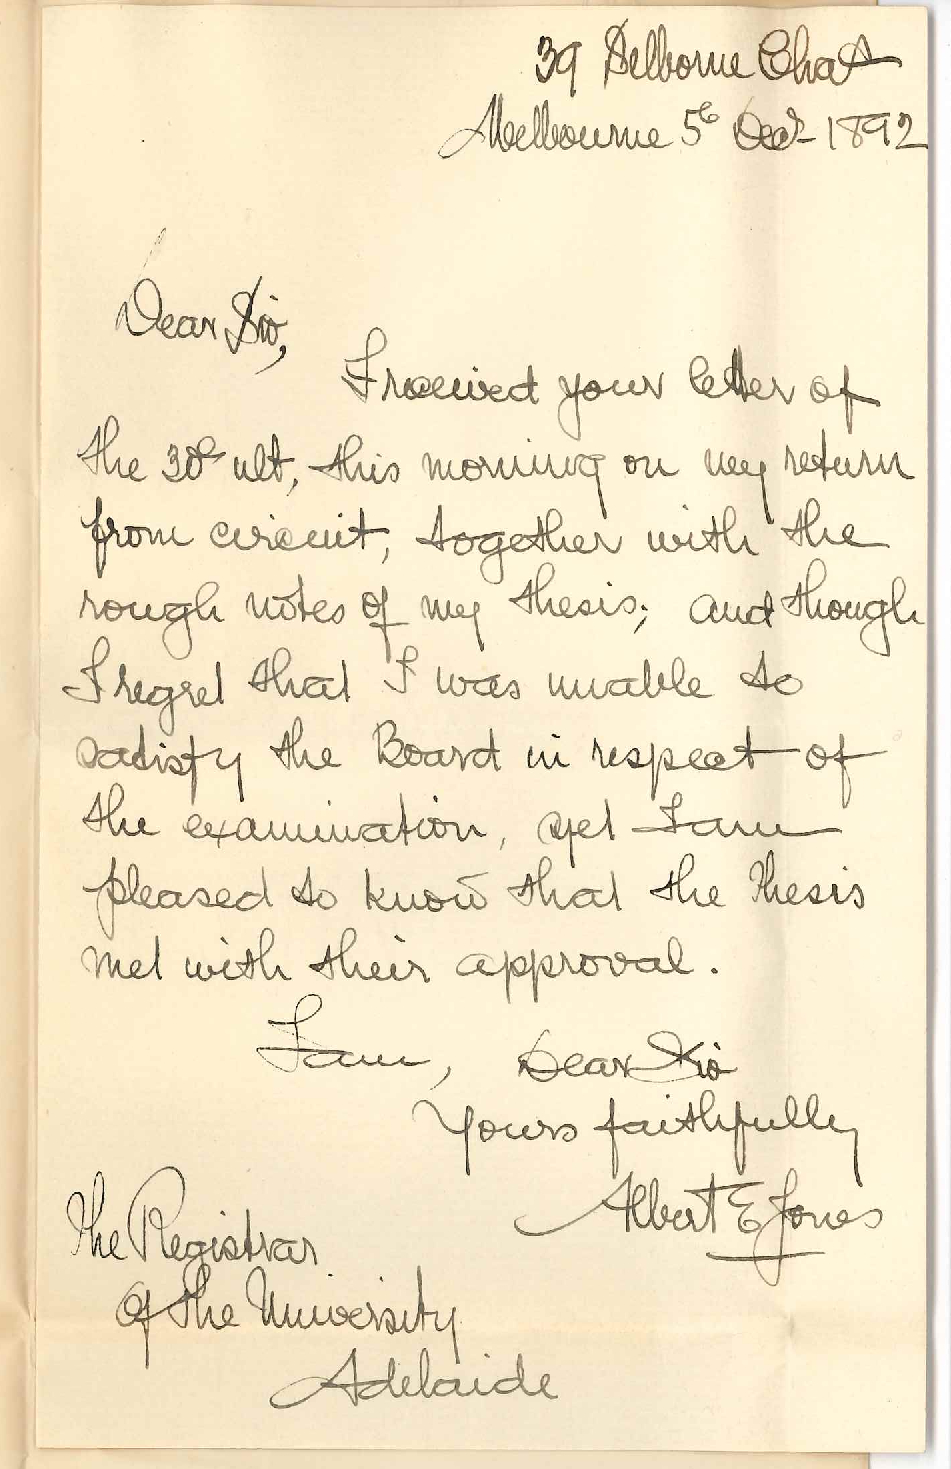 39 Selborne Chas
Melbourne 5th Decr 1892
Dear Sir,
I received your letter of
the 30th ult, this morning on my return
from circuit, together with the
rough notes of my thesis; and though
I regret that I was unable to
satisfy the Board in respect of
the examination, yet I am
pleased to know that the thesis
met with their approval.
I am, Dear Sir
Yours faithfully
Albert E Jones
The Registrar
of the University
Adelaide